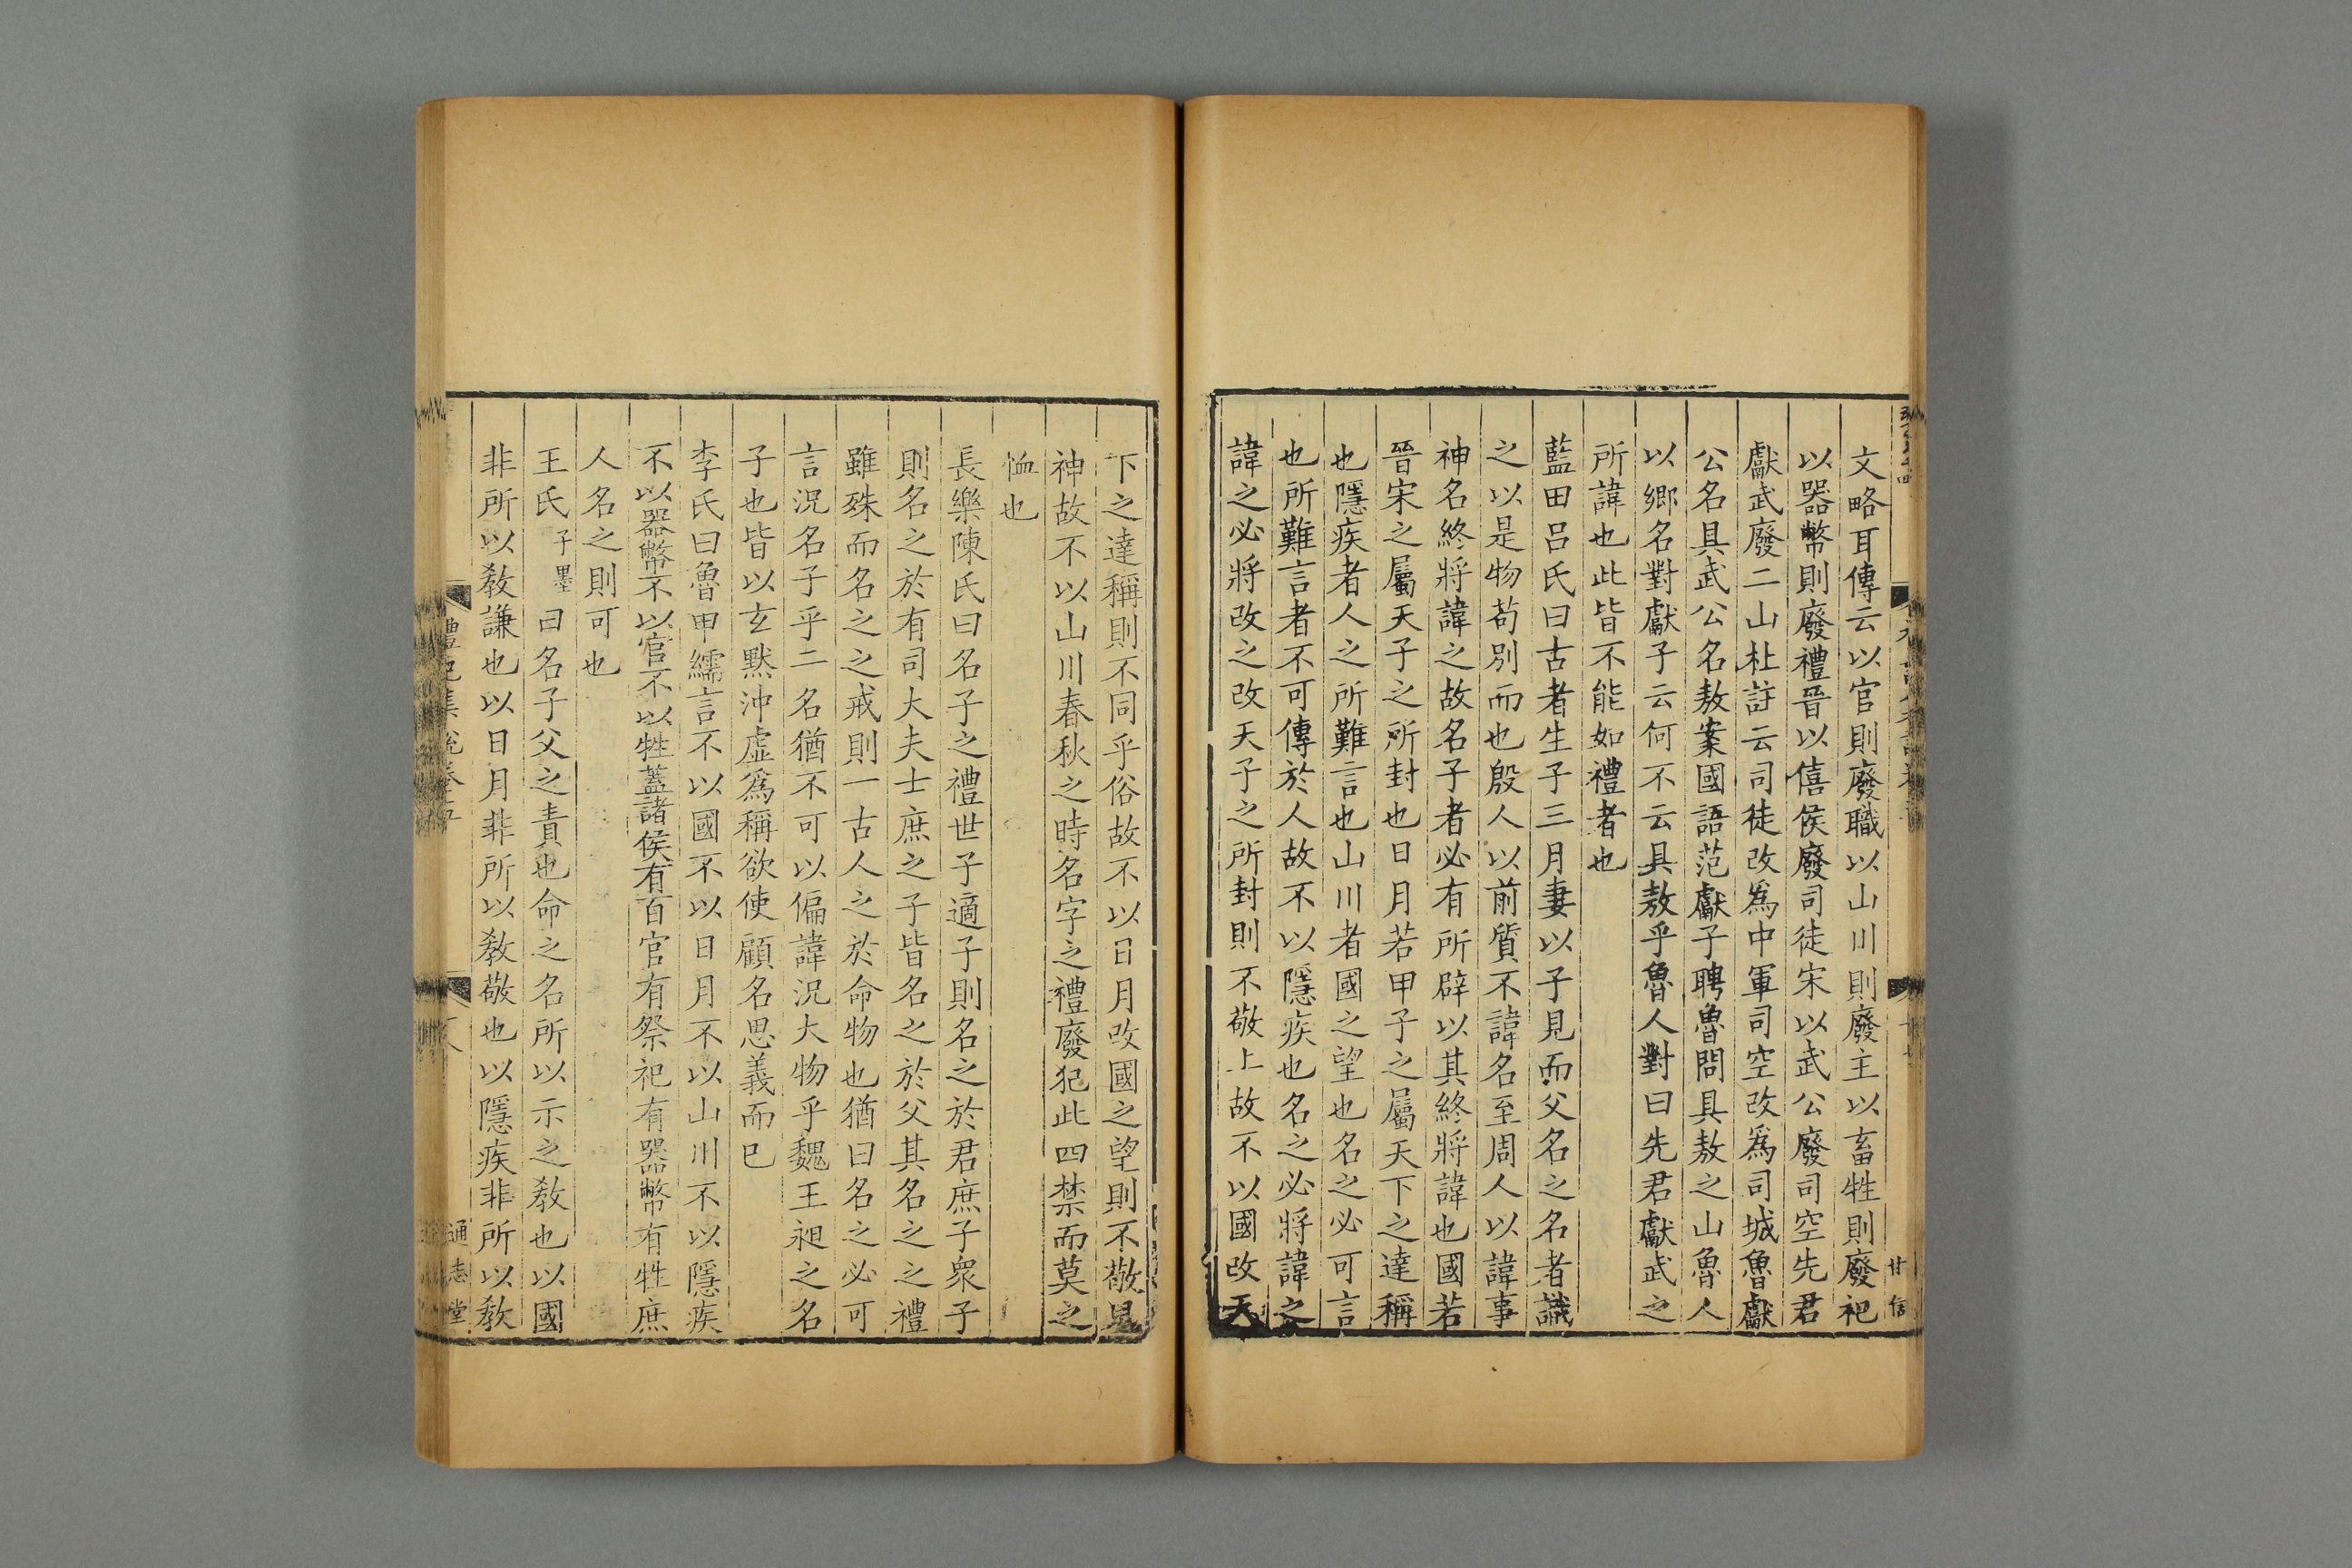 文略耳傳云以官則廢職以山川則廢主以畜牲則廢祀
以器幣則廢禮晉以僖侯廢司徒宋以武公廢司空先君
獻武廢二山杜註云司徒改爲中軍司空改爲司城魯獻
公名具武公名敖案國語范獻子聘魯問具敖之山魯人
以鄉名對獻子云何不云具敖乎魯人對曰先君獻武之
所諱也此皆不能如禮者也
藍田呂氏曰古者生子三月妻以子見而父名之名者識
之以是物苟別而也殷人以前質不諱名至周人以諱事
神名終將諱之故名子者必有所辟以其終將諱也國若
晉宋之屬天子之所封也日月若甲子之屬天下之達稱
也隱疾者人之所難言也山川者國之望也名之必可言
也所難言者不可傳於人故不以隱疾也名之必將諱之
諱之必將改之改天子之所封則不敬上故不以國改天
下之達稱則不同乎俗故不以日月改國之望則不敬鬼
神故不以山川春秋之時名字之禮廢犯此四禁而莫之
恤也
長樂陳氏曰名子之禮世子適子則名之於君庶子衆子
則名之於有司大夫士庶之子皆名之於父其名之之禮
雖殊而名之之戒則一古人之於命物也猶曰名之必可
言況名子乎二名猶不可以偏諱況大物乎魏王昶之名
子也皆以玄默沖虛爲稱欲使顧名思義而已
李氏曰魯申繻言不以國不以日月不以山川不以隱疾
不以器幣不以官不以牲蓋諸侯有百官有祭祀有器幣有牲庶
人名之則可也
王氏子墨曰名子父之責也命之名所以示之教也以國
非所以教謙也以日月非所以教敬也以隱疾非所以教
禮記集說卷五
八
通志堂
甘信